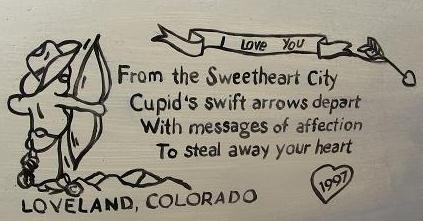 I LOVE YOU
From the Sweetheart City
Cupid's swift arrows depart
With messages of affection
To steal away your heart
1997
LOVELAND, COLORADO